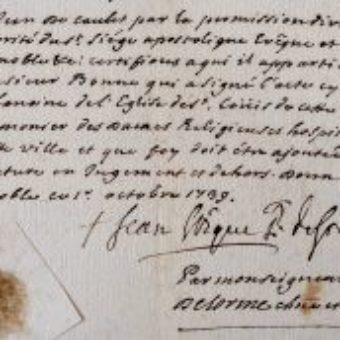 Jean De caulet par la permission div
orité du St. Siége apostolique Evêque et
noble &c: certifions a qui il apparti
sieur Bonne qui a signé l'acte cy
chanoine de l'Eglise de St. Loüis de cette
monier des Dames Religieuses hospit
te ville et que foy doit être ajoutée
ature en Jugement et dehors. Donn
noble ce 1r. octobre 1739.
+ Jean Evêque Pr. de Gr
Par monseigneu
Delorme chne et